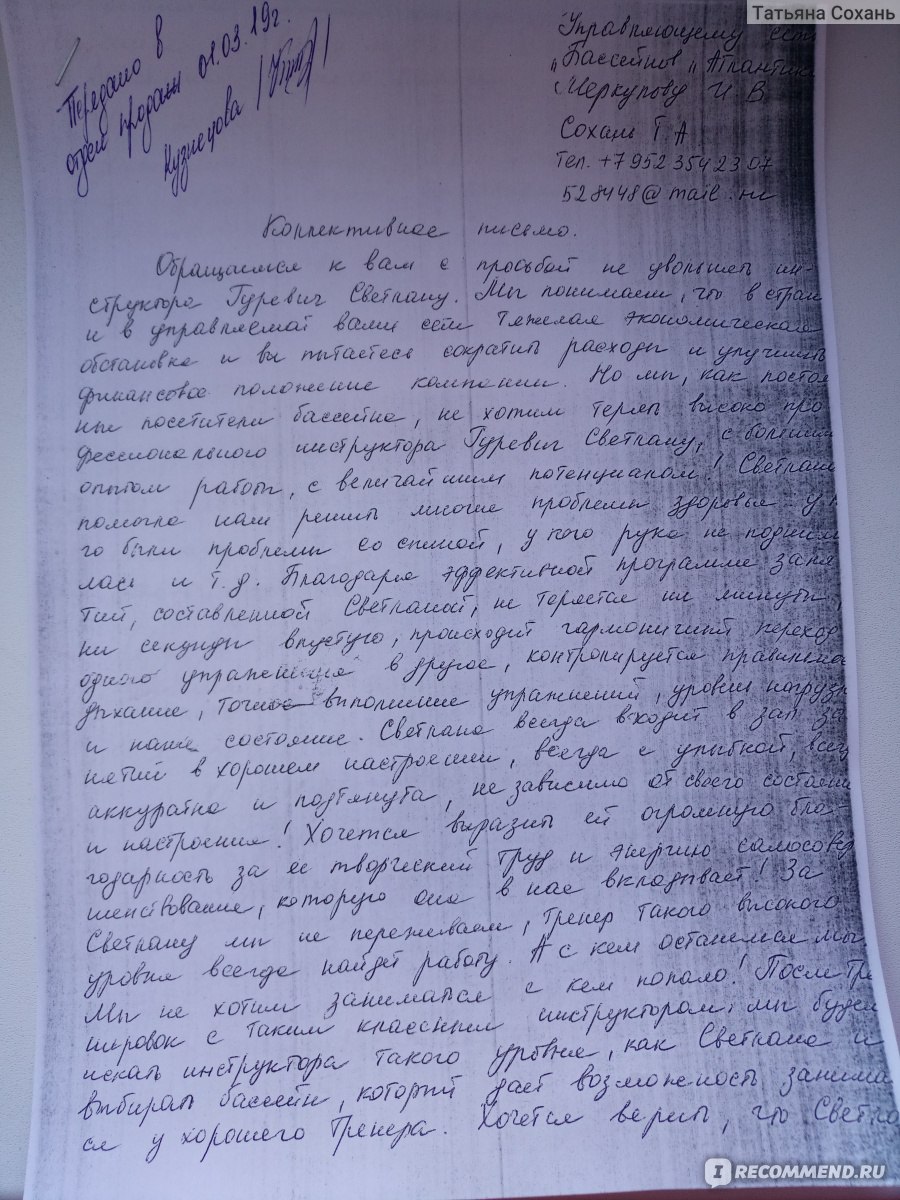 Татьяна Сохань
Передано в
отдел продаж 01.03.19г.
Кузнецова
Управляющему сет
"Бассейнов "Атлантик
Меркулову И В
Сохань Т А
Тел. +7 952 354 23 07
528448@mail.ru
Коллективное письмо.
Обращаемся к вам с просьбой не увольнять ин-
структора Гуревич Светлану. Мы понимаем, что в стран
и в управляемой вами сети тяжелая экономическая
обстановка и вы пытаетесь сократить расходы и улучшить
финансовое положение компании. Но мы, как постоя
ные посетители бассейна, не хотим терять высоко про-
фессионального инструктора Гуревич Светлану, с большим
опытом работы, с величайшим потенциалом! Светлана
помогла нам решить многие проблемы здоровья у к
го были проблемы со спиной, у кого рука не подним
лась и т.д. Благодаря эффективной программе заня
тий, составленной Светланой, не теряется ни минуты,
ни секунды впустую, происходит гармоничный переход
одного упражнения в другое, контролируется правильное
дыхание, точное выполнение упражнений, уровень нагрузк
и наше состояние. Светлана всегда входит в зал за
нятий в хорошем настроении, всегда с улыбкой, всег
аккуратна и подтянута, не зависимо от своего состояни
и настроения! Хочется выразить ей огромную бла-
годарность за ее творческий труд и энергию самосовер
шенствование, которую она в нас вкладывает! За
Светлану мы не переживаем, тренер такого высокого
уровня всегда найдет работу. А с кем останемся мы,
Мы не хотим заниматься с кем попало! После тре
нировок с таким классным инструктором, мы будем
искать инструктора такого уровня, как Светлана и
выбирать бассейн, который дает возможность занима
ся у хорошего тренера. Хочется верить, что Светла
IRECOMMEND.RU